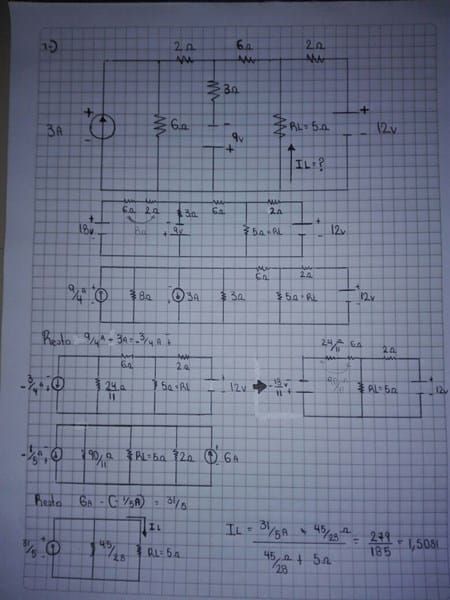 2Ω 6Ω 2Ω
3Ω
+
3A
-
6Ω
-
9v
+
RL=5Ω
+
12v
-
IL=?
6Ω 2Ω 3Ω 6Ω 2Ω
+ 18v -
8Ω
- 9v +
5Ω=RL
+ 12v -
9/4 A 8Ω 3A 3Ω 6Ω 5Ω=RL 2Ω 12v
Resto 9/4 A - 3A = -3/4 A
6Ω 2Ω
-3/4 A
24Ω/11
5Ω=RL
12v
24/11 6Ω 2Ω
-18v/11
90/11
RL=5Ω
12v
-1/5 A 90/11 Ω RL=5Ω 2Ω 6A
Resto 6A - (-1/5A) = 31/5
31/5
45/28
IL
RL=5Ω
IL = 31/5A * 45/28 Ω = 279 = 1,5081
45Ω/28 + 5Ω 185